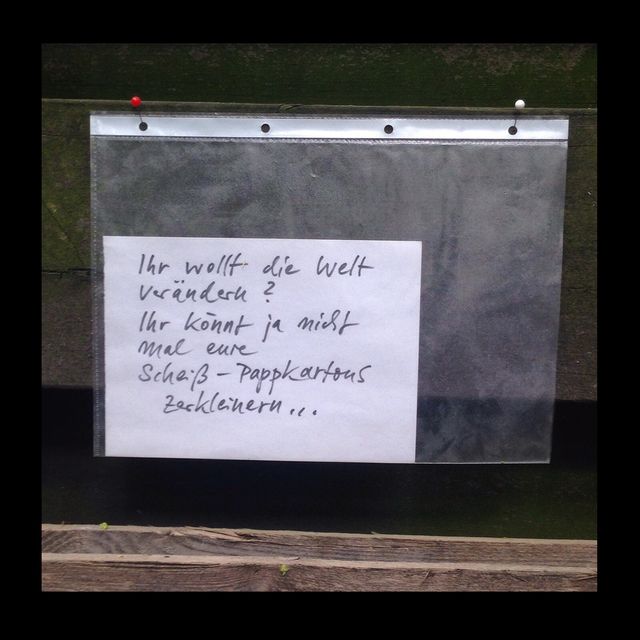 Ihr wollt die Welt
verändern?
Ihr könnt ja nicht
mal eure
Scheiß-Pappkartons
zerkleinern...